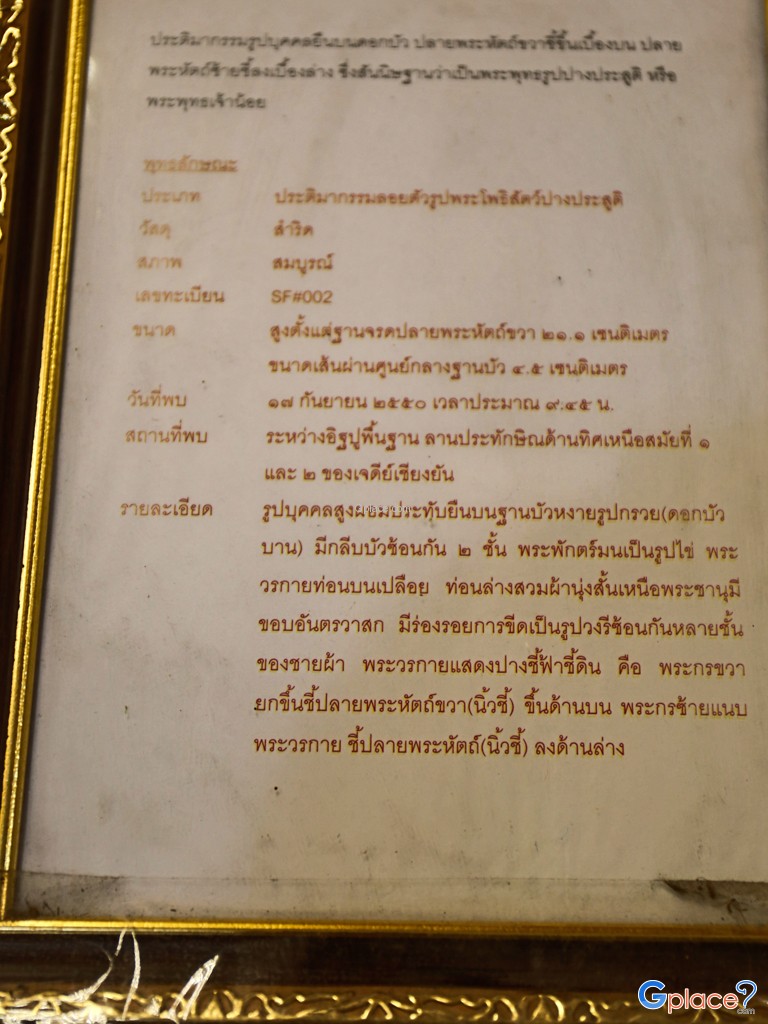 ประติมากรรมรูปบุคคลยืนบนดอกบัว ปลายพระหัตถ์ขวาชี้ขึ้นเบื้องบน ปลาย
พระหัตถ์ซ้ายชี้ลงเบื้องล่าง ซึ่งสันนิษฐานว่าเป็นพระพุทธรูปปางประสูติ หรือ
พระพุทธเจ้าน้อย
พุทธลักษณะ
ประเภท ประติมากรรมลอยตัวรูปพระโพธิสัตว์ปางประสูติ
วัสดุ สำริด
สภาพ สมบูรณ์
เลขทะเบียน SF#002
ขนาด สูงตั้งแต่ฐานจรดปลายพระหัตถ์ขวา ๒๑.๑ เซนติเมตร
ขนาดเส้นผ่านศูนย์กลางฐานบัว ๔.๕ เซนติเมตร
วันที่พบ ๑๗ กันยายน ๒๕๕๐ เวลาประมาณ ๙.๔๕ น.
สถานที่พบ ระหว่างอิฐปูพื้นฐาน ลานประทักษิณด้านทิศเหนือสมัยที่ ๑
และ ๒ ของเจดีย์เชียงยัน
รายละเอียด รูปบุคคลสูงผอมประทับยืนบนฐานบัวหงายรูปกรวย(ดอกบัว
บาน) มีกลีบบัวซ้อนกัน ๒ ชั้น พระพักตร์มนเป็นรูปไข่ พระ
วรกายท่อนบนเปลือย ท่อนล่างสวมผ้านุ่งสั้นเหนือพระชานุมี
ขอบอันตรวาสก มีร่องรอยการขีดเป็นรูปวงรีซ้อนกันหลายชั้น
ของชายผ้า พระวรกายแสดงปางชี้ฟ้าชี้ดิน คือ พระกรขวา
ยกขึ้นชี้ปลายพระหัตถ์ขวา(นิ้วชี้) ขึ้นด้านบน พระกรซ้ายแนบ
พระวรกาย ชี้ปลายพระหัตถ์(นิ้วชี้) ลงด้านล่าง
Gplace?.com